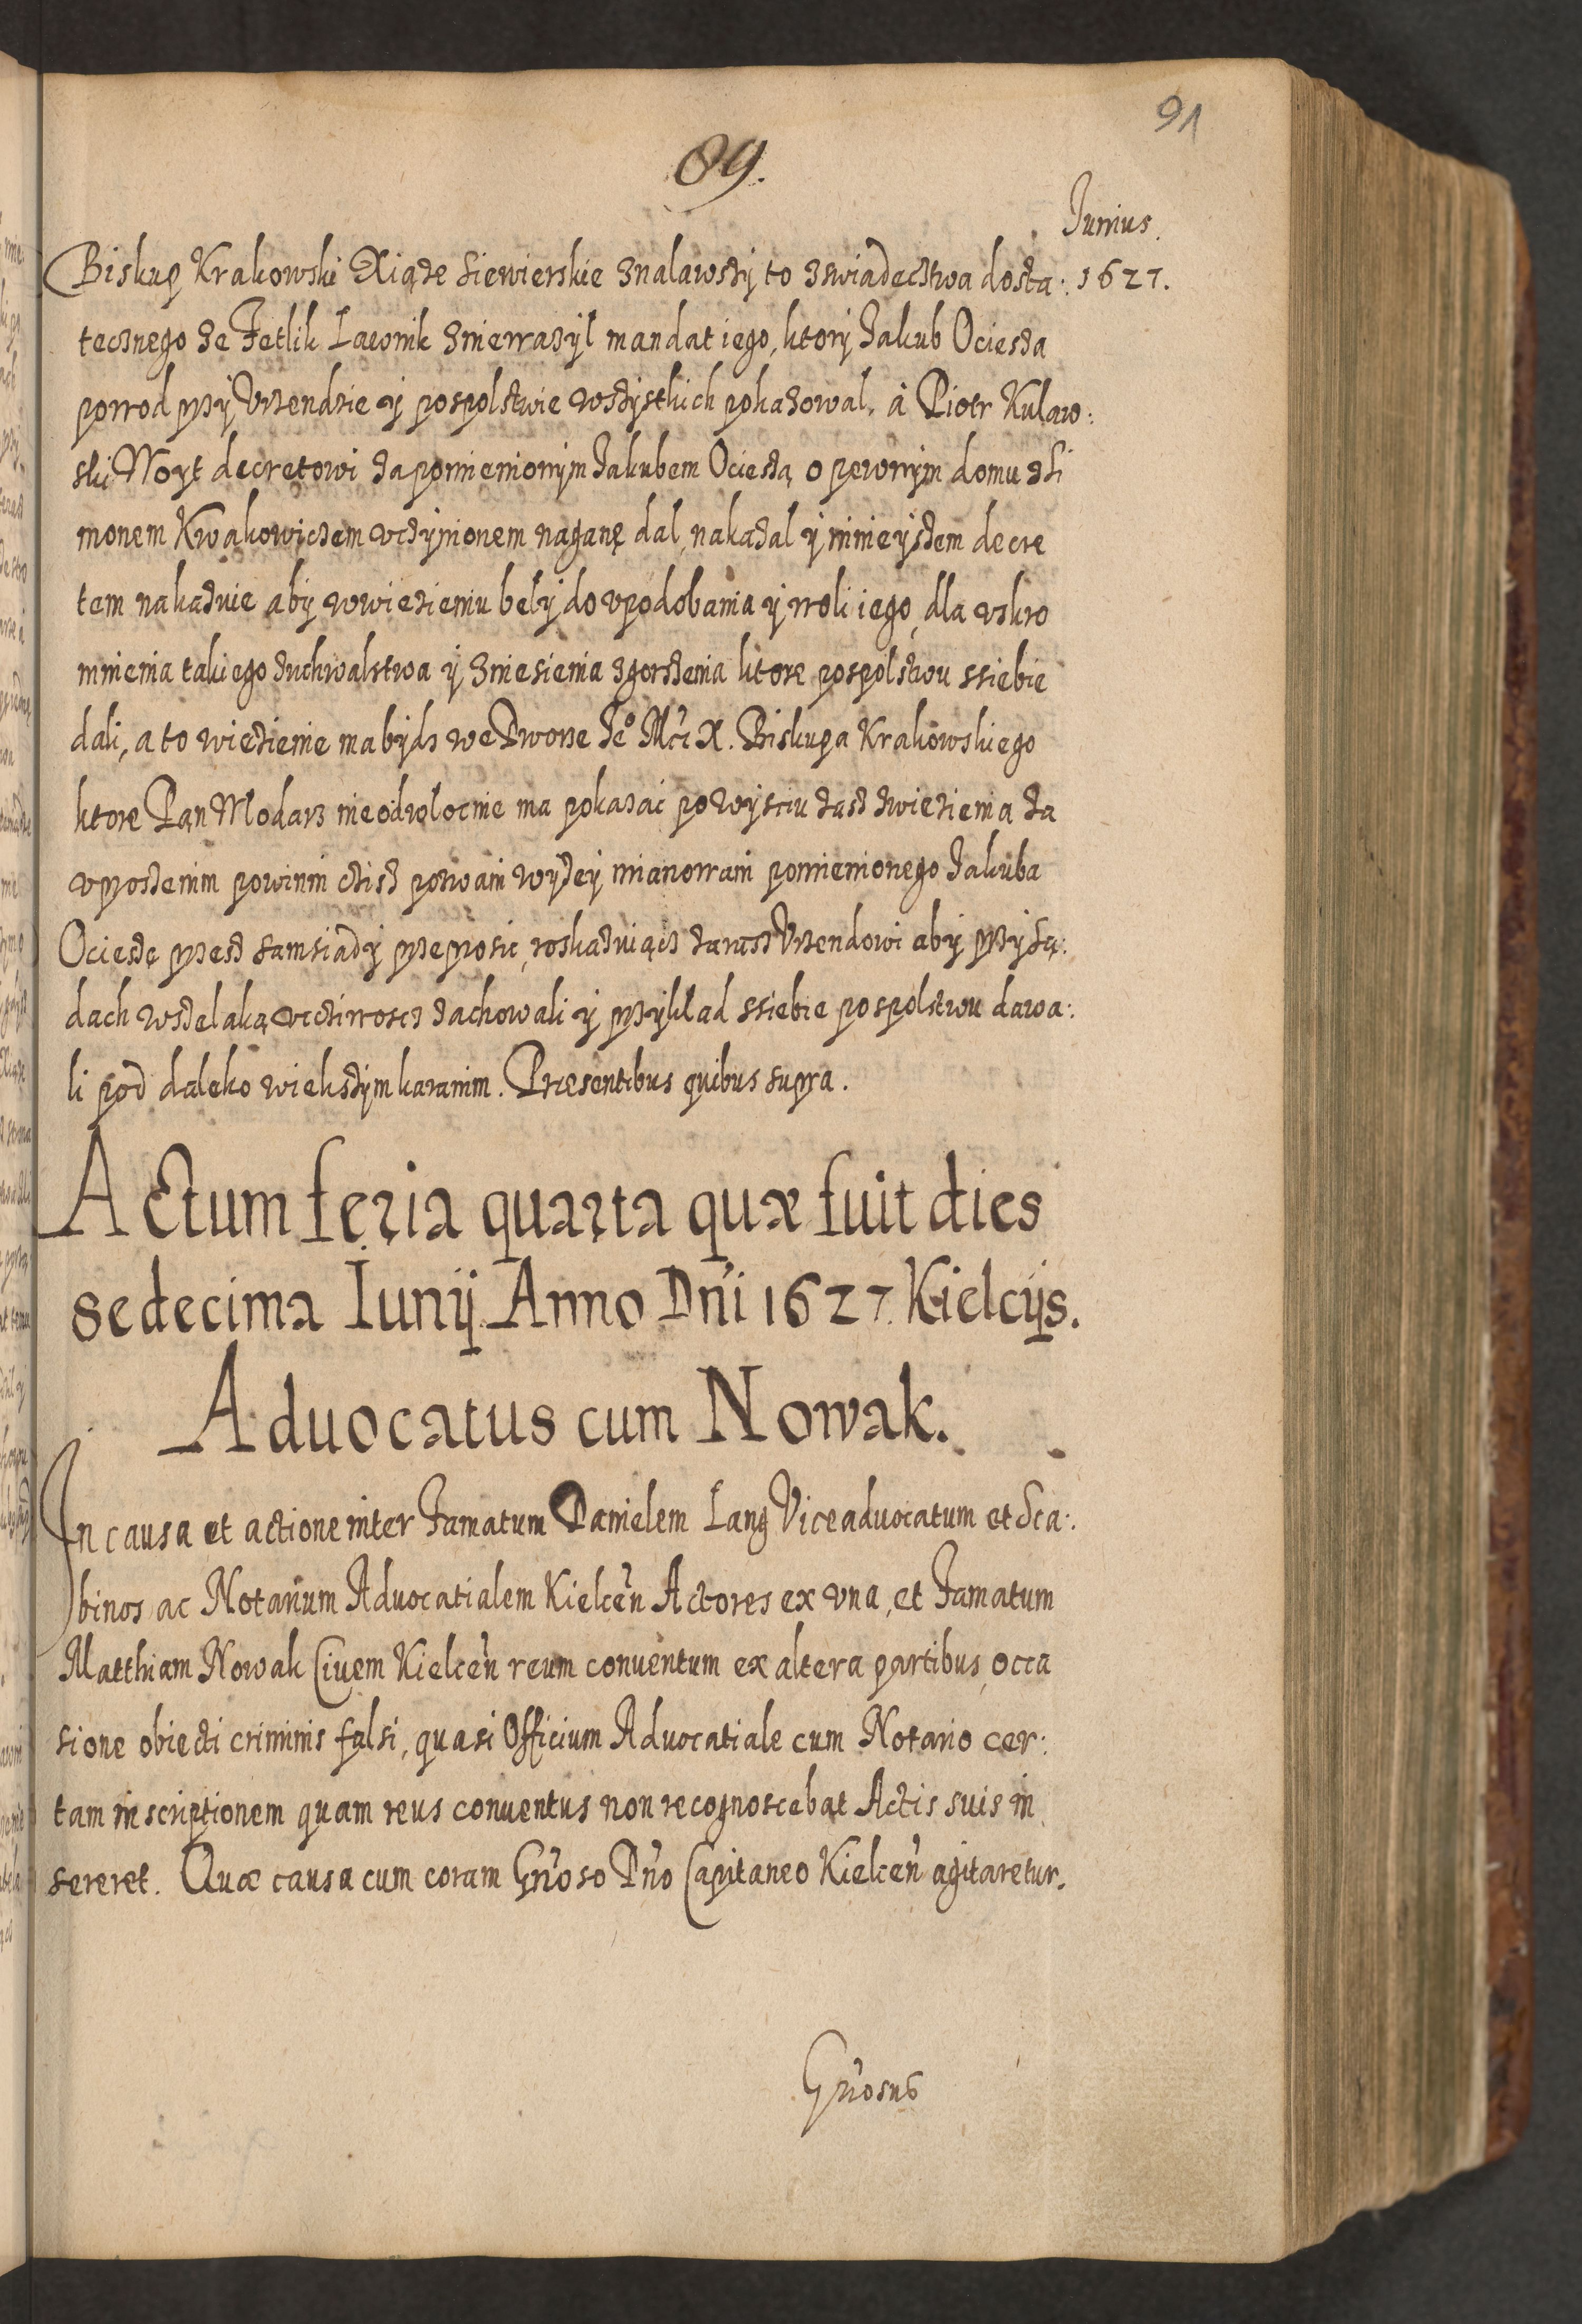 91
89.
Junius.
Biskup Krakowski Xiąże Siewierskie znalawszy to zswiadecztwa dosta: 1627.
tecznego że Fetlik Lawnik znieważyl mandat iego, ktory Jakub Ociesza
powod przy Vrzendzie y pospolstwie wszystkich pokazowal, à Piotr Kulaw:
ski Woyt decretowi zapomienionym Jakubem Ocieszą o pewnym domu zSi
monem Kwakowiczem vczynionem naganę dal, nakazal y ninieyszem decre
tem nakazuie aby wwiezieniu beły do vpodobania y woli iego, dla vskro
mnienia takiego zuchwalstwa y zniesienia zgorszenia ktore pospolstwu ssiebie
dali, a to wiezienie ma bydz we Dworze Je° Mći X. Biskupa Krakowskiego
ktore Pan Wlodarz nieodwlocnie ma pokazac po wysciu zasz zwiezienia za
vproszenim powinni cisz pozwani wyzey mianowani pomienionego Jakuba
Ocieszę przesz samsiady przeprosic, roskazuiącz zarasz Vrzendowi aby przy Są:
dach wszelaką vcztiwoscz zachowali y przyklad ssiebie pospolstwu dawa:
li pod daleko wiekszym karanim. Præsentibus quibus supra.
Actum feria quarta quæ fuit dies
sedecima Iunij Anno Dńi 1627. Kielcijs.
Aduocatus cum Nowak.
In causa et actione inter Famatum Danielem Lang Viceaduocatum et Sca:
binos ac Notarium Aduocatialem Kielceń Actores ex vna, et Famatum
Matthiam Nowak Ciuem Kielceń reum conuentum ex altera partibus, occa
sione obiecti criminis falsi, quasi Officium Aduocatiale cum Notario cer:
tam inscriptionem quam reus conuentus non recognoscebat Actis suis in
sereret. Quæ causa cum coram Gńoso Dńo Capitaneo Kielceń agitaretur.
Gńosus